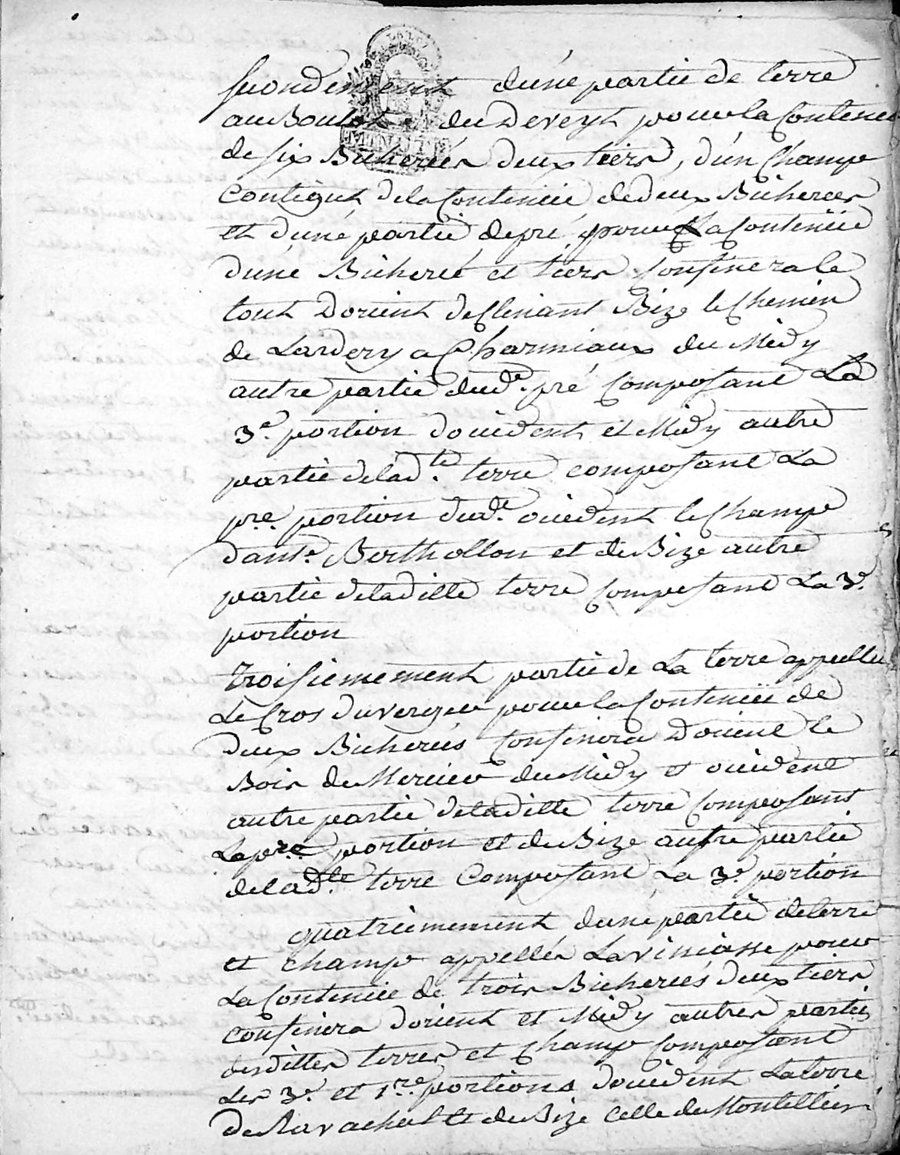 secondement d'une partie de terre
au Boutot du Deveyt pour la Contenue
de six Bicherées deux tiers, d'un Champ
contigut de la Contenüe de deux Bicherées
et d'une partie de pré pour la Contenüe
d'une Bicherée et tiers Confinera le
tout d'orient declinant Bize le chemin
de Lardery a Charmiaux du Midy
autre partie dud.t pré Composant La
3.e portion d'occident et Midy autre
partie de lad.te terre composant La
pre. portion dud. occident le Champ
d'ant.e Berthollon et de Bize autre
partie de laditte terre Composant La 3.e
portion
troisiemement partie de La terre appellée
Le Cros du verger pour la Contenüe de
deux Bicherées Confinera D'orient le
Bois de Mercier du Midy et occident
autre partie de laditte terre Composant
La pre portion et de Bize autre partie
de lad.te terre Composant La 3.e portion
quatriemement d'une partie de terre
et champ appellés La viniasse pour
La Contenüe de trois Bicherées deux tiers
confinera d'orient et Midy autres parties
desdittes terres et Champ Composant
Les 3.e et 1.re portions d'occident La terre
de Ravachol et de Bize Celle de Montellier